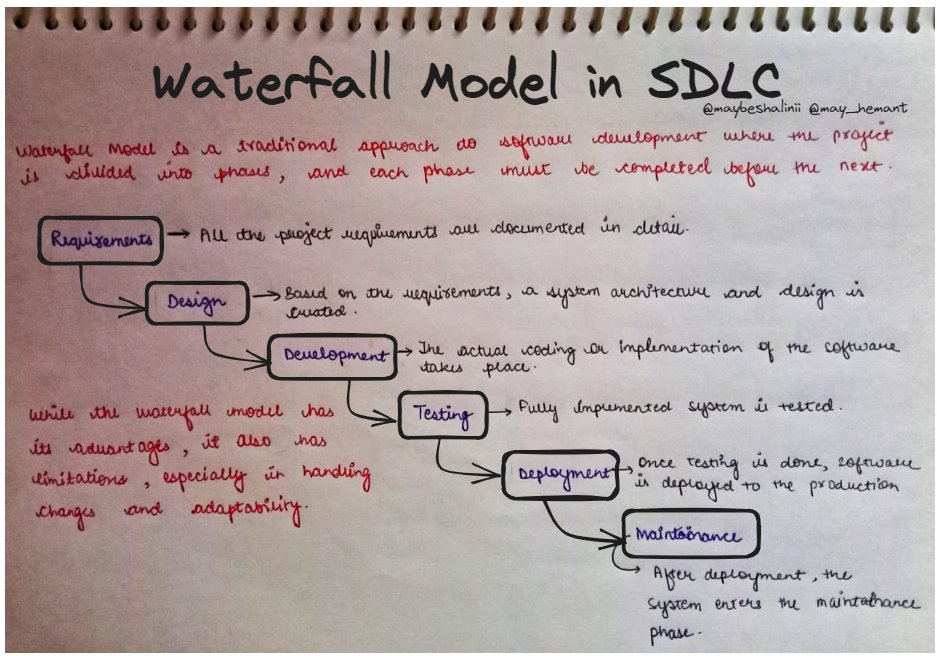 Waterfall Model in SDLC
@maybeshalinii @may_hemant
Waterfall Model is a traditional approach to software development where the project
is divided into phases, and each phase must be completed before the next.
Requirements → All the project requirements are documented in detail.
Design → Based on the requirements, a system architecture and design is
created.
Development → The actual coding or implementation of the software
takes place.
Testing → Fully implemented system is tested.
While the waterfall model has
its advantages, it also has
limitations, especially in handling
changes and adaptability.
Deployment → Once testing is done, software
is deployed to the production
Maintainance
→ After deployment, the
system enters the maintainance
phase.